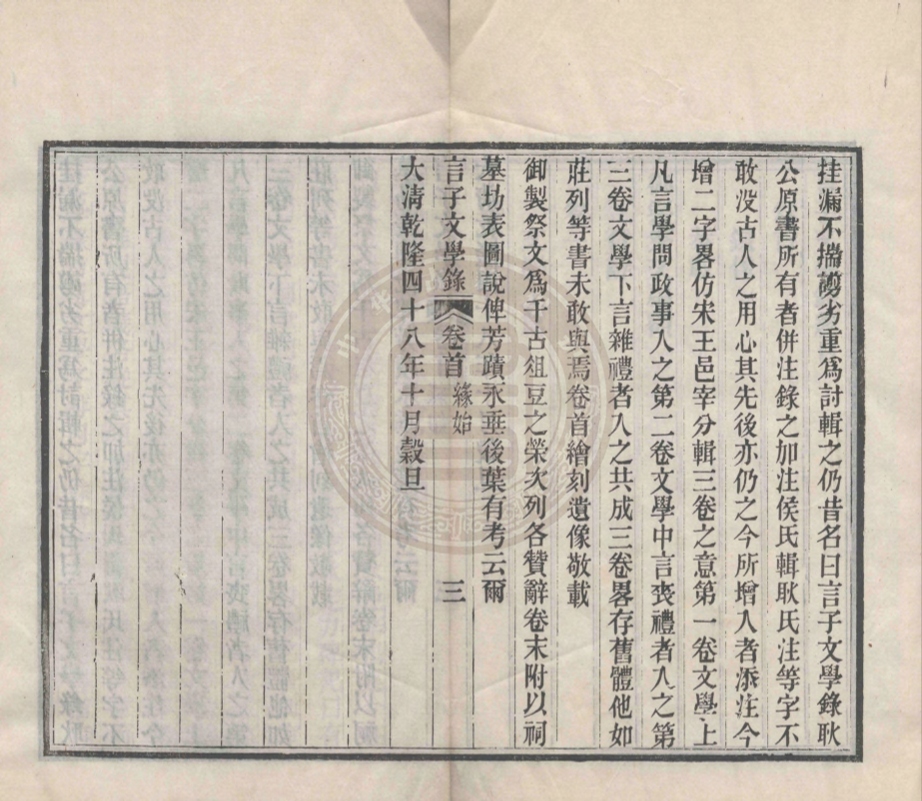 挂漏不揣謭劣重爲討輯之仍昔名曰言子文學錄耿
公原書所有者併注錄之加注侯氏輯耿氏注等字不
敢没古人之用心其先後亦仍之今所增入者添注今
增二字畧仿宋王邑宰分輯三卷之意第一卷文學上
凡言學問政事入之第二卷文學中言喪禮者入之第
三卷文學下言雜禮者入之共成三卷畧存舊體他如
莊列等書未敢與焉卷首繪刻遺像敬載
御製祭文爲千古俎豆之榮次列各贊辭卷末附以祠
墓坊表圖說俾芳蹟永垂後葉有考云爾
言子文學錄 卷首 緣始 三
大清乾隆四十八年十月穀旦